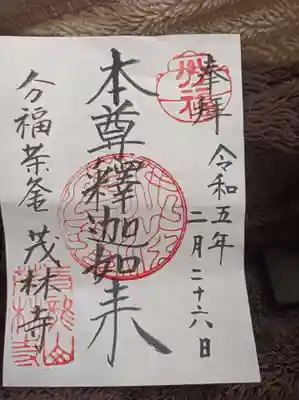 奉拝
令和五年
二月二十六日
本尊釋迦如来
分福茶釜
茂林寺